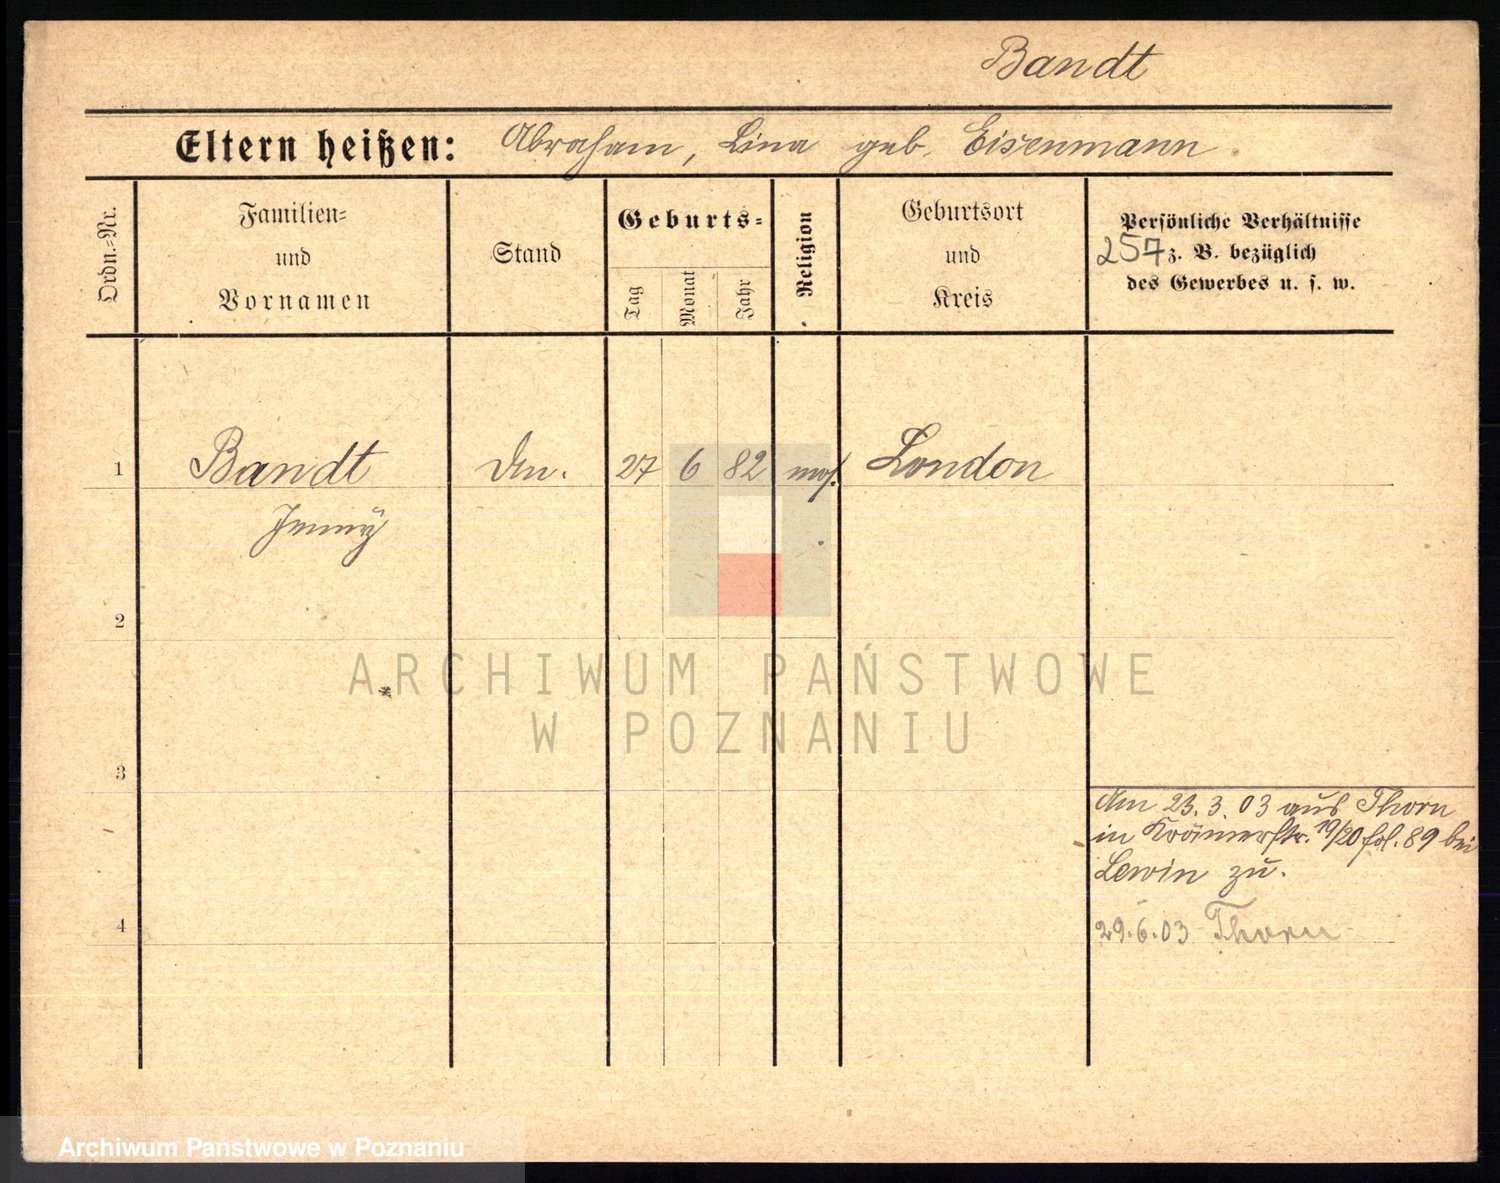 Bandt
Eltern heißen: Abraham, Lina geb. Eisenmann
Ordn.=Nr.
Familien=
und
Vornamen
Stand
Geburts=
Tag
Monat
Jahr
Religion
Geburtsort
und
Kreis
Persönliche Verhältnisse
257 z. B. bezüglich
des Gewerbes u. s. w.
1 Bandt 27 6 82 mos. London
Jenny
2
3
4
Am 23.3.03 aus Thorn
in Krämerstr. 19/20 fol. 89 bei
Lewin zu.
29.6.03 Thorn
ARCHIWUM PAŃSTWOWE
W POZNANIU
Archiwum Państwowe w Poznaniu